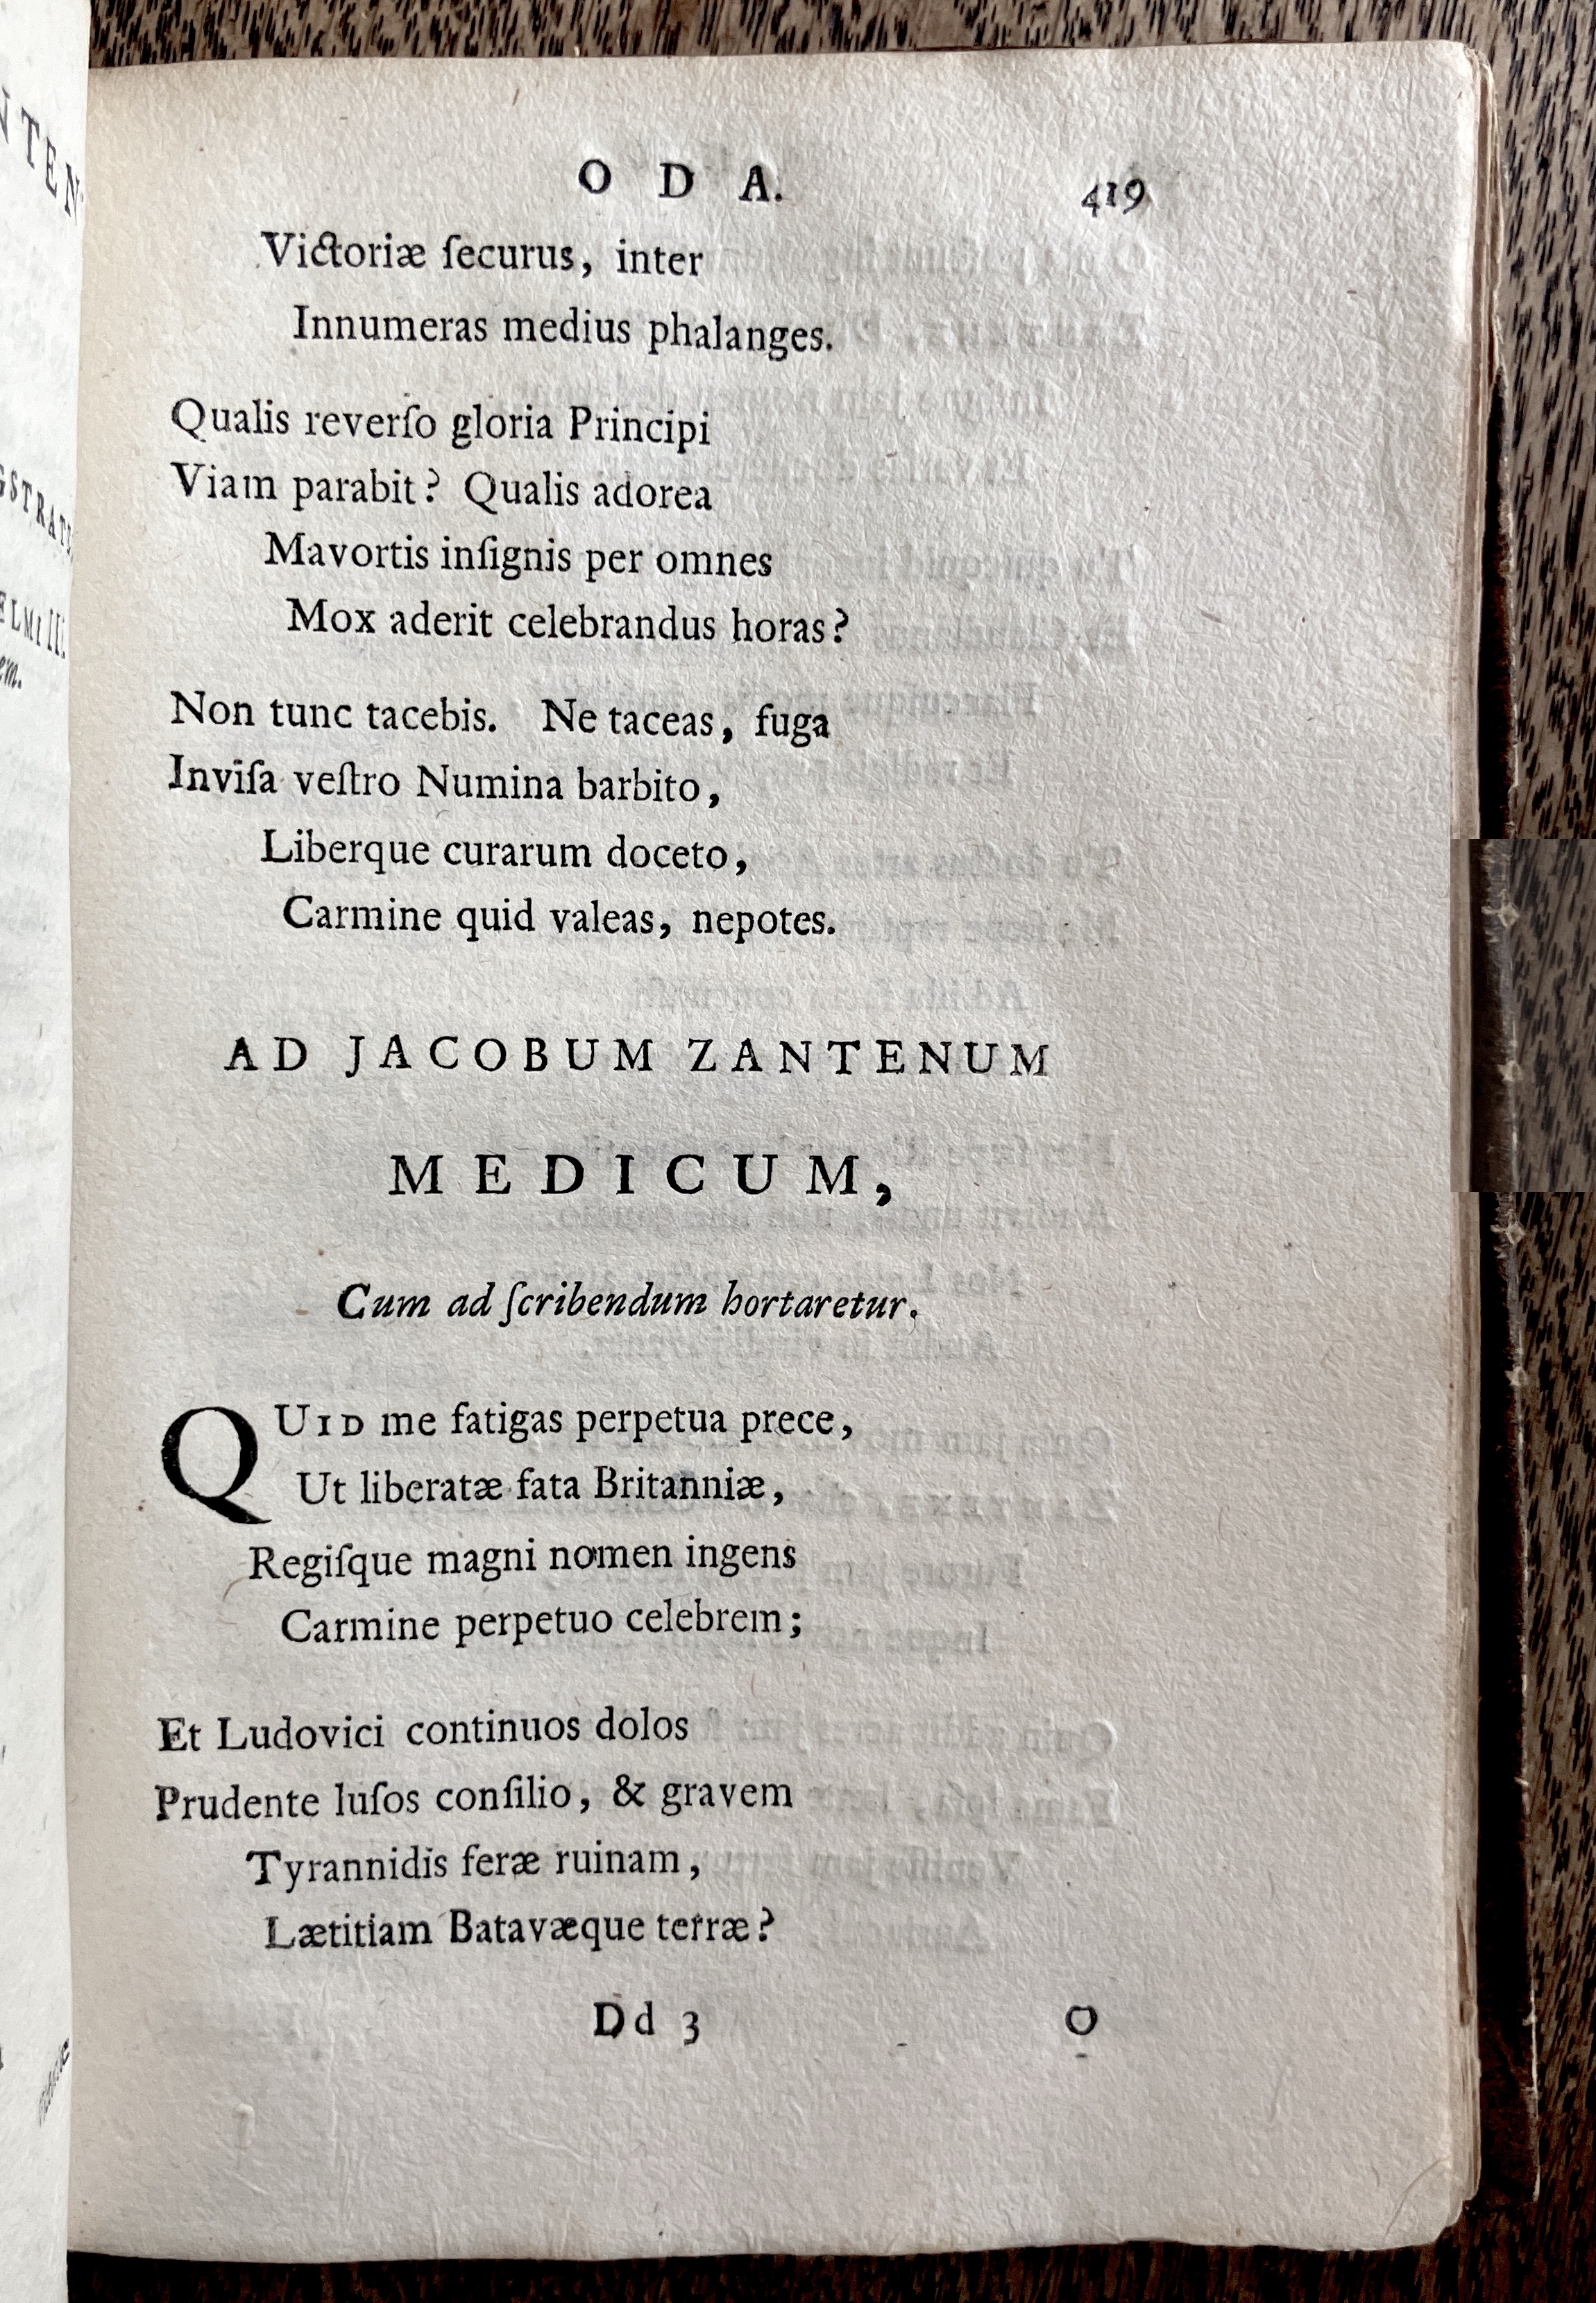 O D A. 419
Victoriæ ſecurus, inter
Innumeras medius phalanges.
Qualis reverſo gloria Principi
Viam parabit? Qualis adorea
Mavortis inſignis per omnes
Mox aderit celebrandus horas?
Non tunc tacebis. Ne taceas, fuga
Inviſa veſtro Numina barbito,
Liberque curarum doceto,
Carmine quid valeas, nepotes.
AD JACOBUM ZANTENUM
MEDICUM,
Cum ad ſcribendum hortaretur.
QUID me fatigas perpetua prece,
Ut liberatæ fata Britanniæ,
Regiſque magni nomen ingens
Carmine perpetuo celebrem;
Et Ludovici continuos dolos
Prudente luſos conſilio, & gravem
Tyrannidis feræ ruinam,
Lætitiam Batavæque terræ?
Dd 3 O